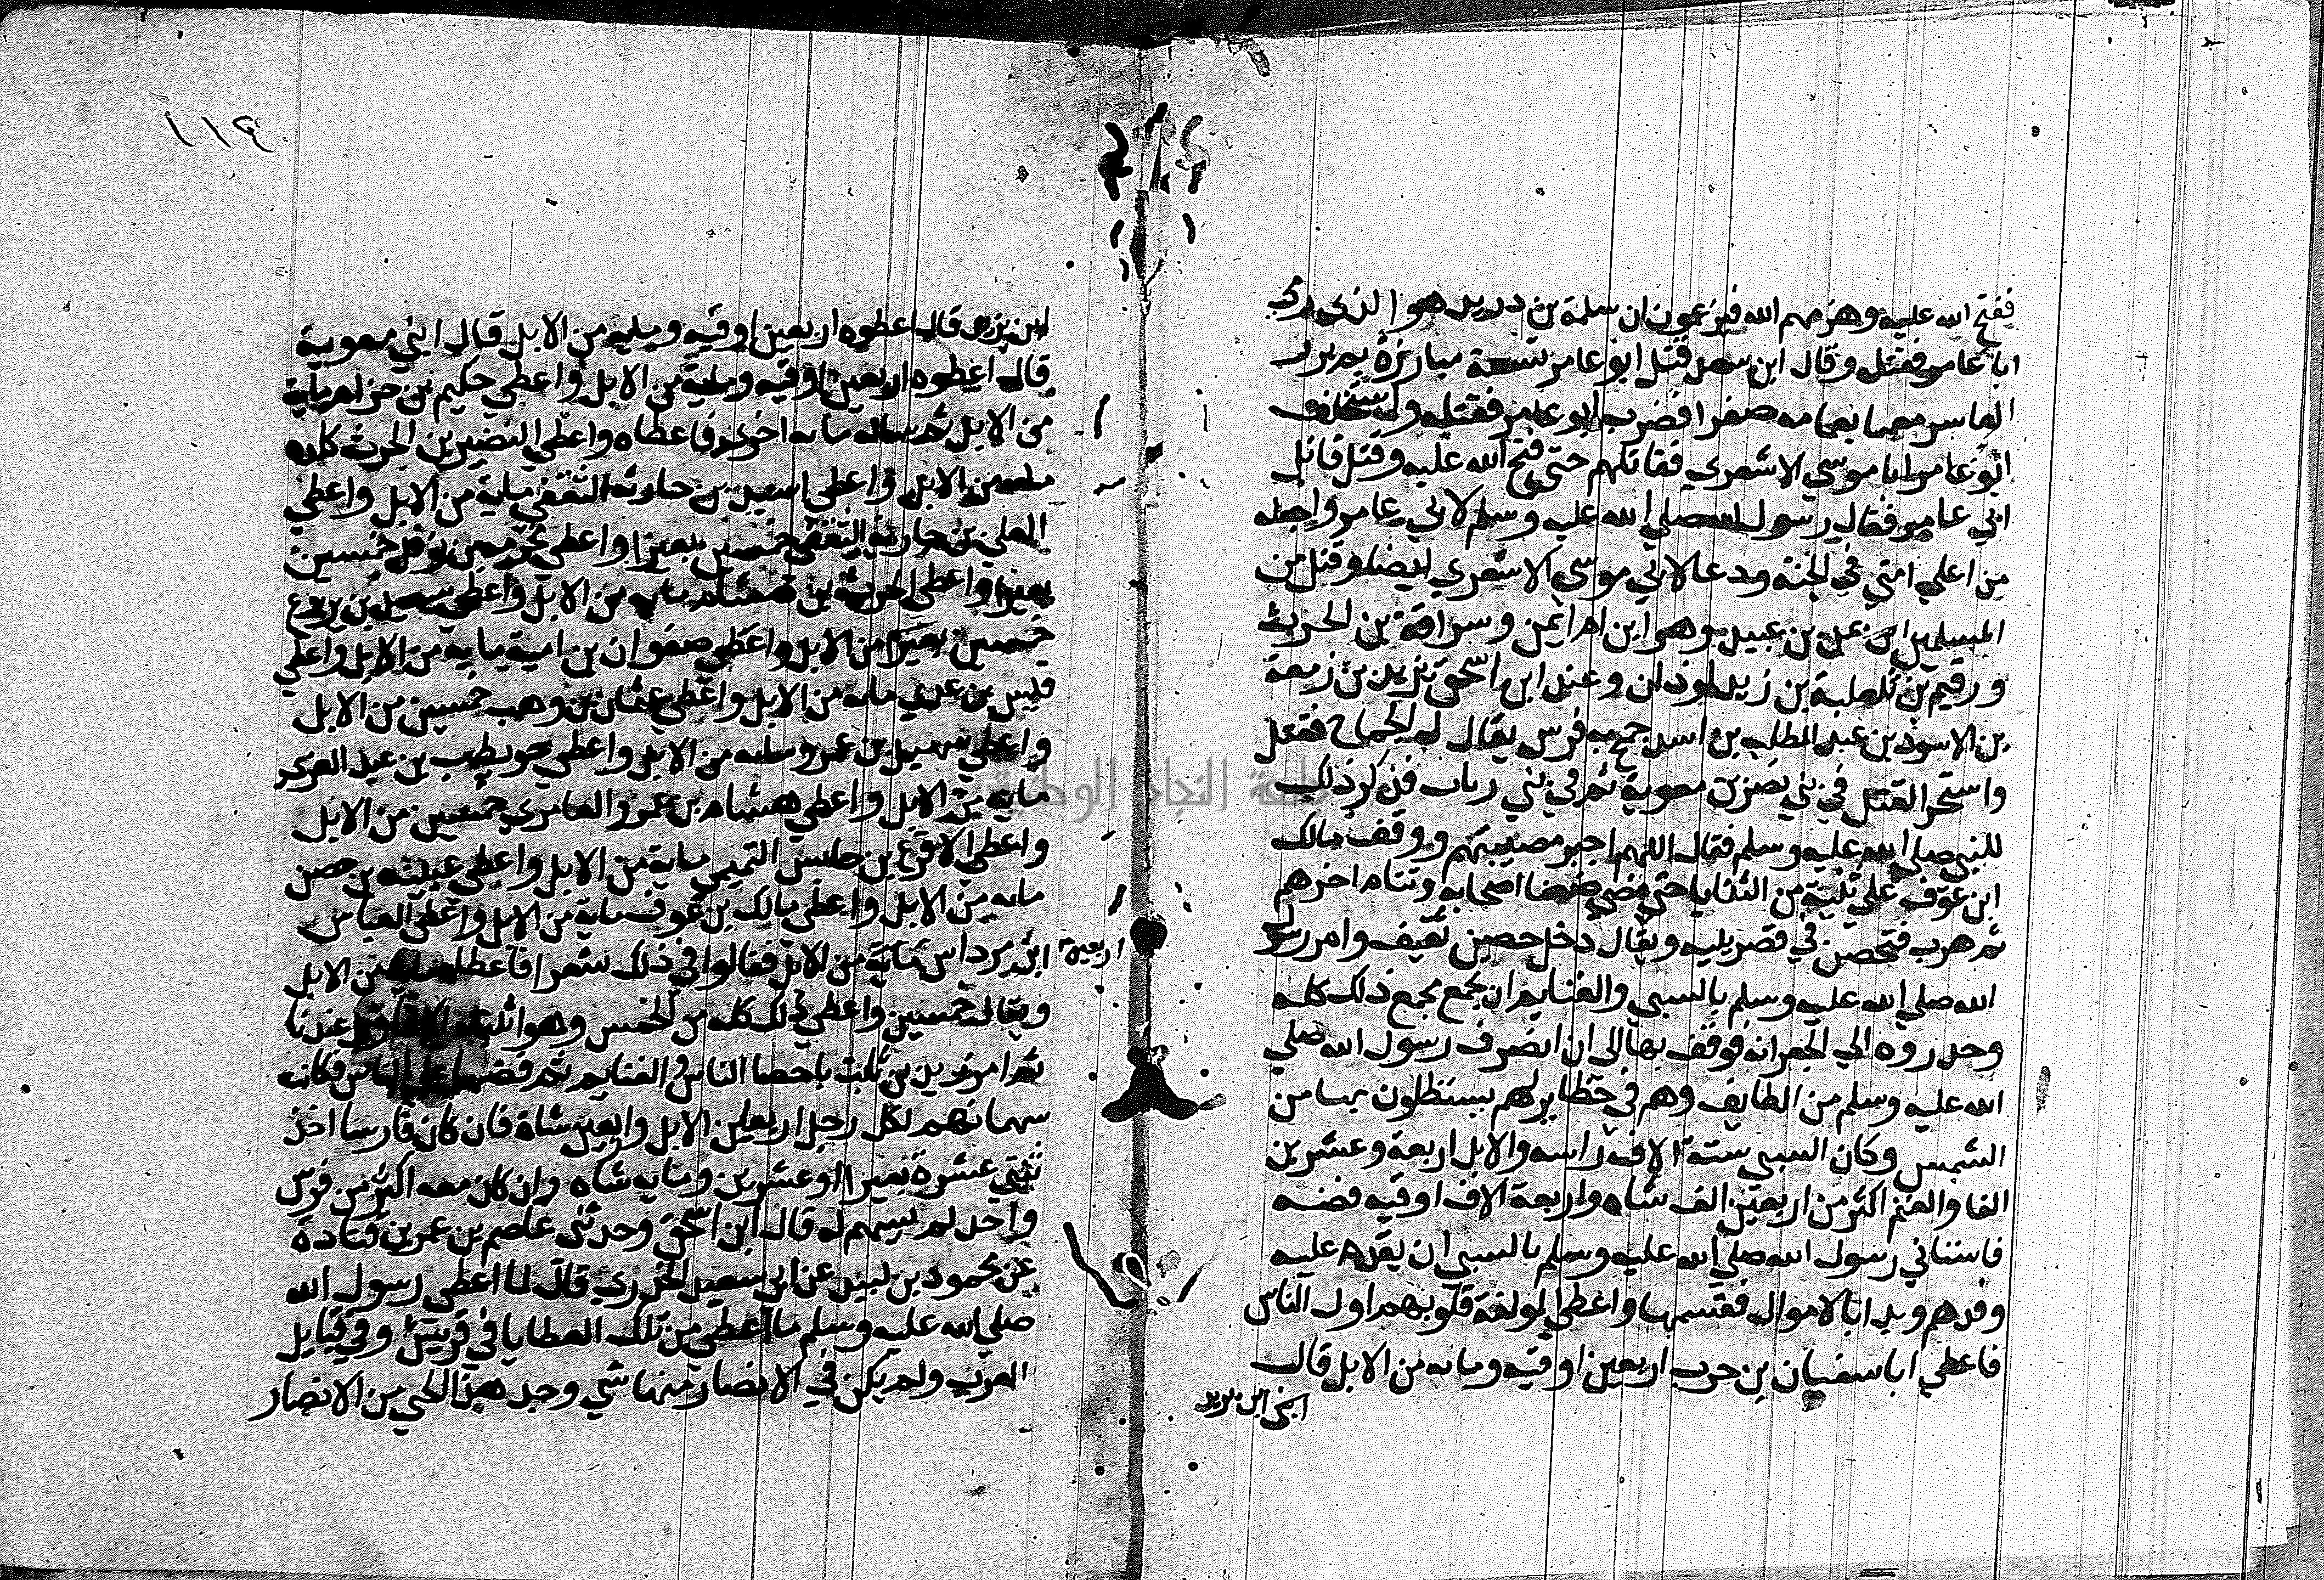 ففتح الله عليه وهزمهم الله فيزعمون ان سلمة بن دريد هو الذي رمى
ابا عامر فقتل وقال ابن سعد قتل ابو عامر تسعة مبارزة ثم برز
العاشر معلما بعمامه صفرا فضرب ابو عامر فقتله واستخلف
ابو عامر ابا موسي الاشعري فقاتلهم حتى فتح الله عليه وقتل قاتل
ابي عامر فقال رسول الله صلي الله عليه وسلم لابي عامر واجعله
من اعلي امتي في الجنة ودعا لابي موسي الاشعري ايضا وقتل من
المسلمين ايمن بن عبيد وهو ابن ام ايمن وسراقة بن الحرث
ورقيم بن ثعلبة بن زيد لوذان وعند ابن اسحق يزيد بن زمعة
بن الاسود بن عبد المطلب بن اسد جمح به فرس يقال له الجماح فقتل
واستحر القتل في بني نصر بن معوية ثم في بني رباب فذكر ذلك
للنبي صلي الله عليه وسلم فقال اللهم اجبر مصيبتهم ووقف مالك
ابن عوف علي ثنية من الثنايا حتي مضي ضعفا اصحابه وتتام اخرهم
ثم هرب فتحصن في قصر بليه ويقال دخل حصن ثقيف وامر رسول
الله صلي الله عليه وسلم بالسبي والغنايم ان يجمع فجمع ذلك كله
وحدروه الي الجعرانه فوقف بها الى ان انصرف رسول الله صلي
الله عليه وسلم من الطايف وهم في حظايرلهم يستظلون بها من
الشمس وكان السبي ستة الاف راسه والابل اربعة وعشرين
الفا والغنم اكثر من اربعين الف شاه واربعة الاف اوقيه فضه
فاستاني رسول الله صلي الله عليه وسلم بالسبي ان يقدم عليه
وفدهم وبدا بالاموال فقسمها واعطي المولفة قلوبهم اول الناس
فاعطي ابا سفيان بن حرب اربعين اوقيه ومايه من الابل قال
ابني ابن يزيد
١١٤
ابن يزيد قال اعطوه اربعين اوقيه ومايه من الابل قال ابني معوية
قال اعطوه اربعين اوقيه وماية من الابل واعطي حكيم بن حزام ماية
من الابل ثم ساله مايه اخرى فاعطاه واعطي النضير بن الحرث كلده
مايه من الابل واعطى اسيد بن حارثه الثقفي ماية من الابل واعطي
العلي بن حارثة الثقفي خمسين بعيرا واعطي مخرمه بن نوفل خمسين
بعيرا واعطي الحرث بن هشام مايه من الابل واعطي سعيد بن يربوع
خمسين بعيرا من الابل واعطي صفوان بن امية مايه من الابل واعطي
قيس بن عدي مايه من الابل واعطي عثمان بن وهب خمسين من الابل
واعطي سهيل بن عمرو مايه من الابل واعطي حويطب بن عبد العزى
مايه من الابل واعطي هشام بن عمرو العامري خمسين من الابل
واعطي الاقرع بن حابس التميمي ماية من الابل واعطي عيينه بن حصن
مايه من الابل واعطي مالك بن عوف ماية من الابل واعطي العباس
اربعين
ابن مرداس من الابل فقالوا في ذلك شعرا فاعطاه من الابل
ويقال خمسين واعطي ذلك كله من الخمس وهو اثبت عندنا
ثم امر زيد بن ثابت باحصا الناس والغنايم ثم فضها علي الناس فكانت
سهمانهم لكل رجل اربعا من الابل واربعين شاة فان كان فارسا اخذ
ثنتي عشرة بعيرا او عشرين ومايه شاه وان كان معه اكثر من فرس
واحد لم يسهم له قال ابن اسحق وحدثني عاصم بن عمر بن قتادة
عن محمود بن لبيد عن ابي سعيد الخدري قال لما اعطي رسول الله
صلي الله عليه وسلم ما اعطي من تلك العطايا في قريش وفي قبايل
العرب ولم يكن في الانصار منها شي وجد هذا الحي من الانصار